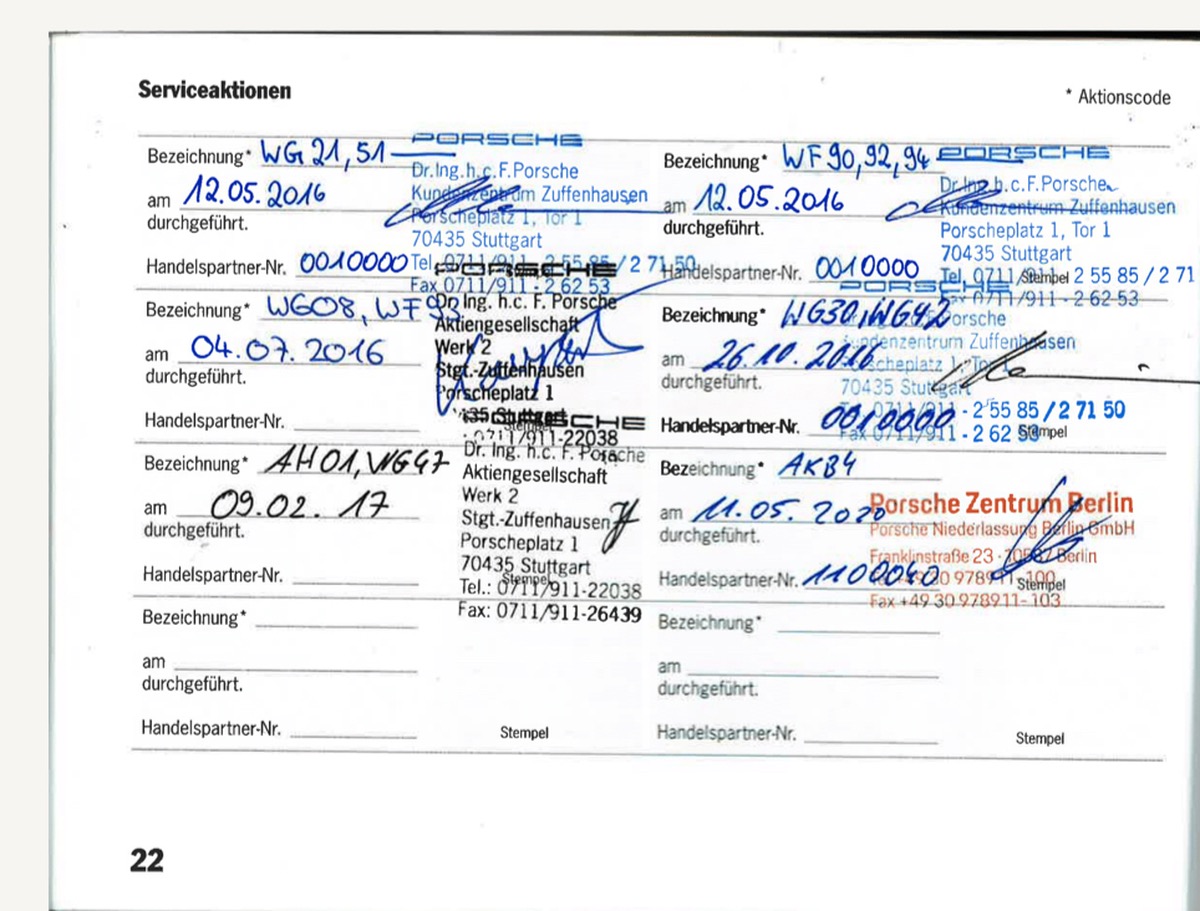 Serviceaktionen
* Aktionscode
Bezeichnung* WG 21, 51
am 12.05.2016
durchgeführt.
Handelspartner-Nr. 0010000
PORSCHE
Dr.Ing.h.c.F.Porsche
Kundenzentrum Zuffenhausen
Porscheplatz 1, Tor 1
70435 Stuttgart
Tel. 0711/911- 2 55 85 / 2 71 50
Fax 0711/911 - 2 62 53
Bezeichnung* WF 90, 92, 94
am 12.05.2016
durchgeführt.
Handelspartner-Nr. 0010000
PORSCHE
Dr.Ing.h.c.F.Porsche
Kundenzentrum Zuffenhausen
Porscheplatz 1, Tor 1
70435 Stuttgart
Tel. 0711/ 2 55 85 / 2 71
Fax 0711/911 - 2 62 53
Stempel
Bezeichnung* WG08, WF93
am 04.07.2016
durchgeführt.
Handelspartner-Nr.
PORSCHE
Dr. Ing. h.c. F. Porsche
Aktiengesellschaft
Werk 2
Stgt.-Zuffenhausen
Porscheplatz 1
Stuttgart
0711/911-22038
Stempel
Bezeichnung* WG30, WG42
am 26.10.2016
durchgeführt.
Handelspartner-Nr. 0010000
PORSCHE
Porsche
Kundenzentrum Zuffenhausen
Porscheplatz 1, Tor
70435 Stuttgart
0711/911 - 2 55 85 / 2 71 50
Fax 0711/911 - 2 62 53
Stempel
Bezeichnung* AH01, WG47
am 09.02.17
durchgeführt.
Handelspartner-Nr.
PORSCHE
Dr. Ing. h.c. F. Porsche
Aktiengesellschaft
Werk 2
Stgt.-Zuffenhausen
Porscheplatz 1
70435 Stuttgart
Stempel
Tel.: 0711/911-22038
Fax: 0711/911-26439
Bezeichnung* AKB4
am 11.05.2020
durchgeführt.
Handelspartner-Nr. 1100040
Porsche Zentrum Berlin
Porsche Niederlassung Berlin GmbH
Franklinstraße 23 · 10587 Berlin
+49 30 978911-100
Fax +49 30 978911-103
Stempel
Bezeichnung*
am
durchgeführt.
Handelspartner-Nr.
Stempel
Bezeichnung*
am
durchgeführt.
Handelspartner-Nr.
Stempel
22